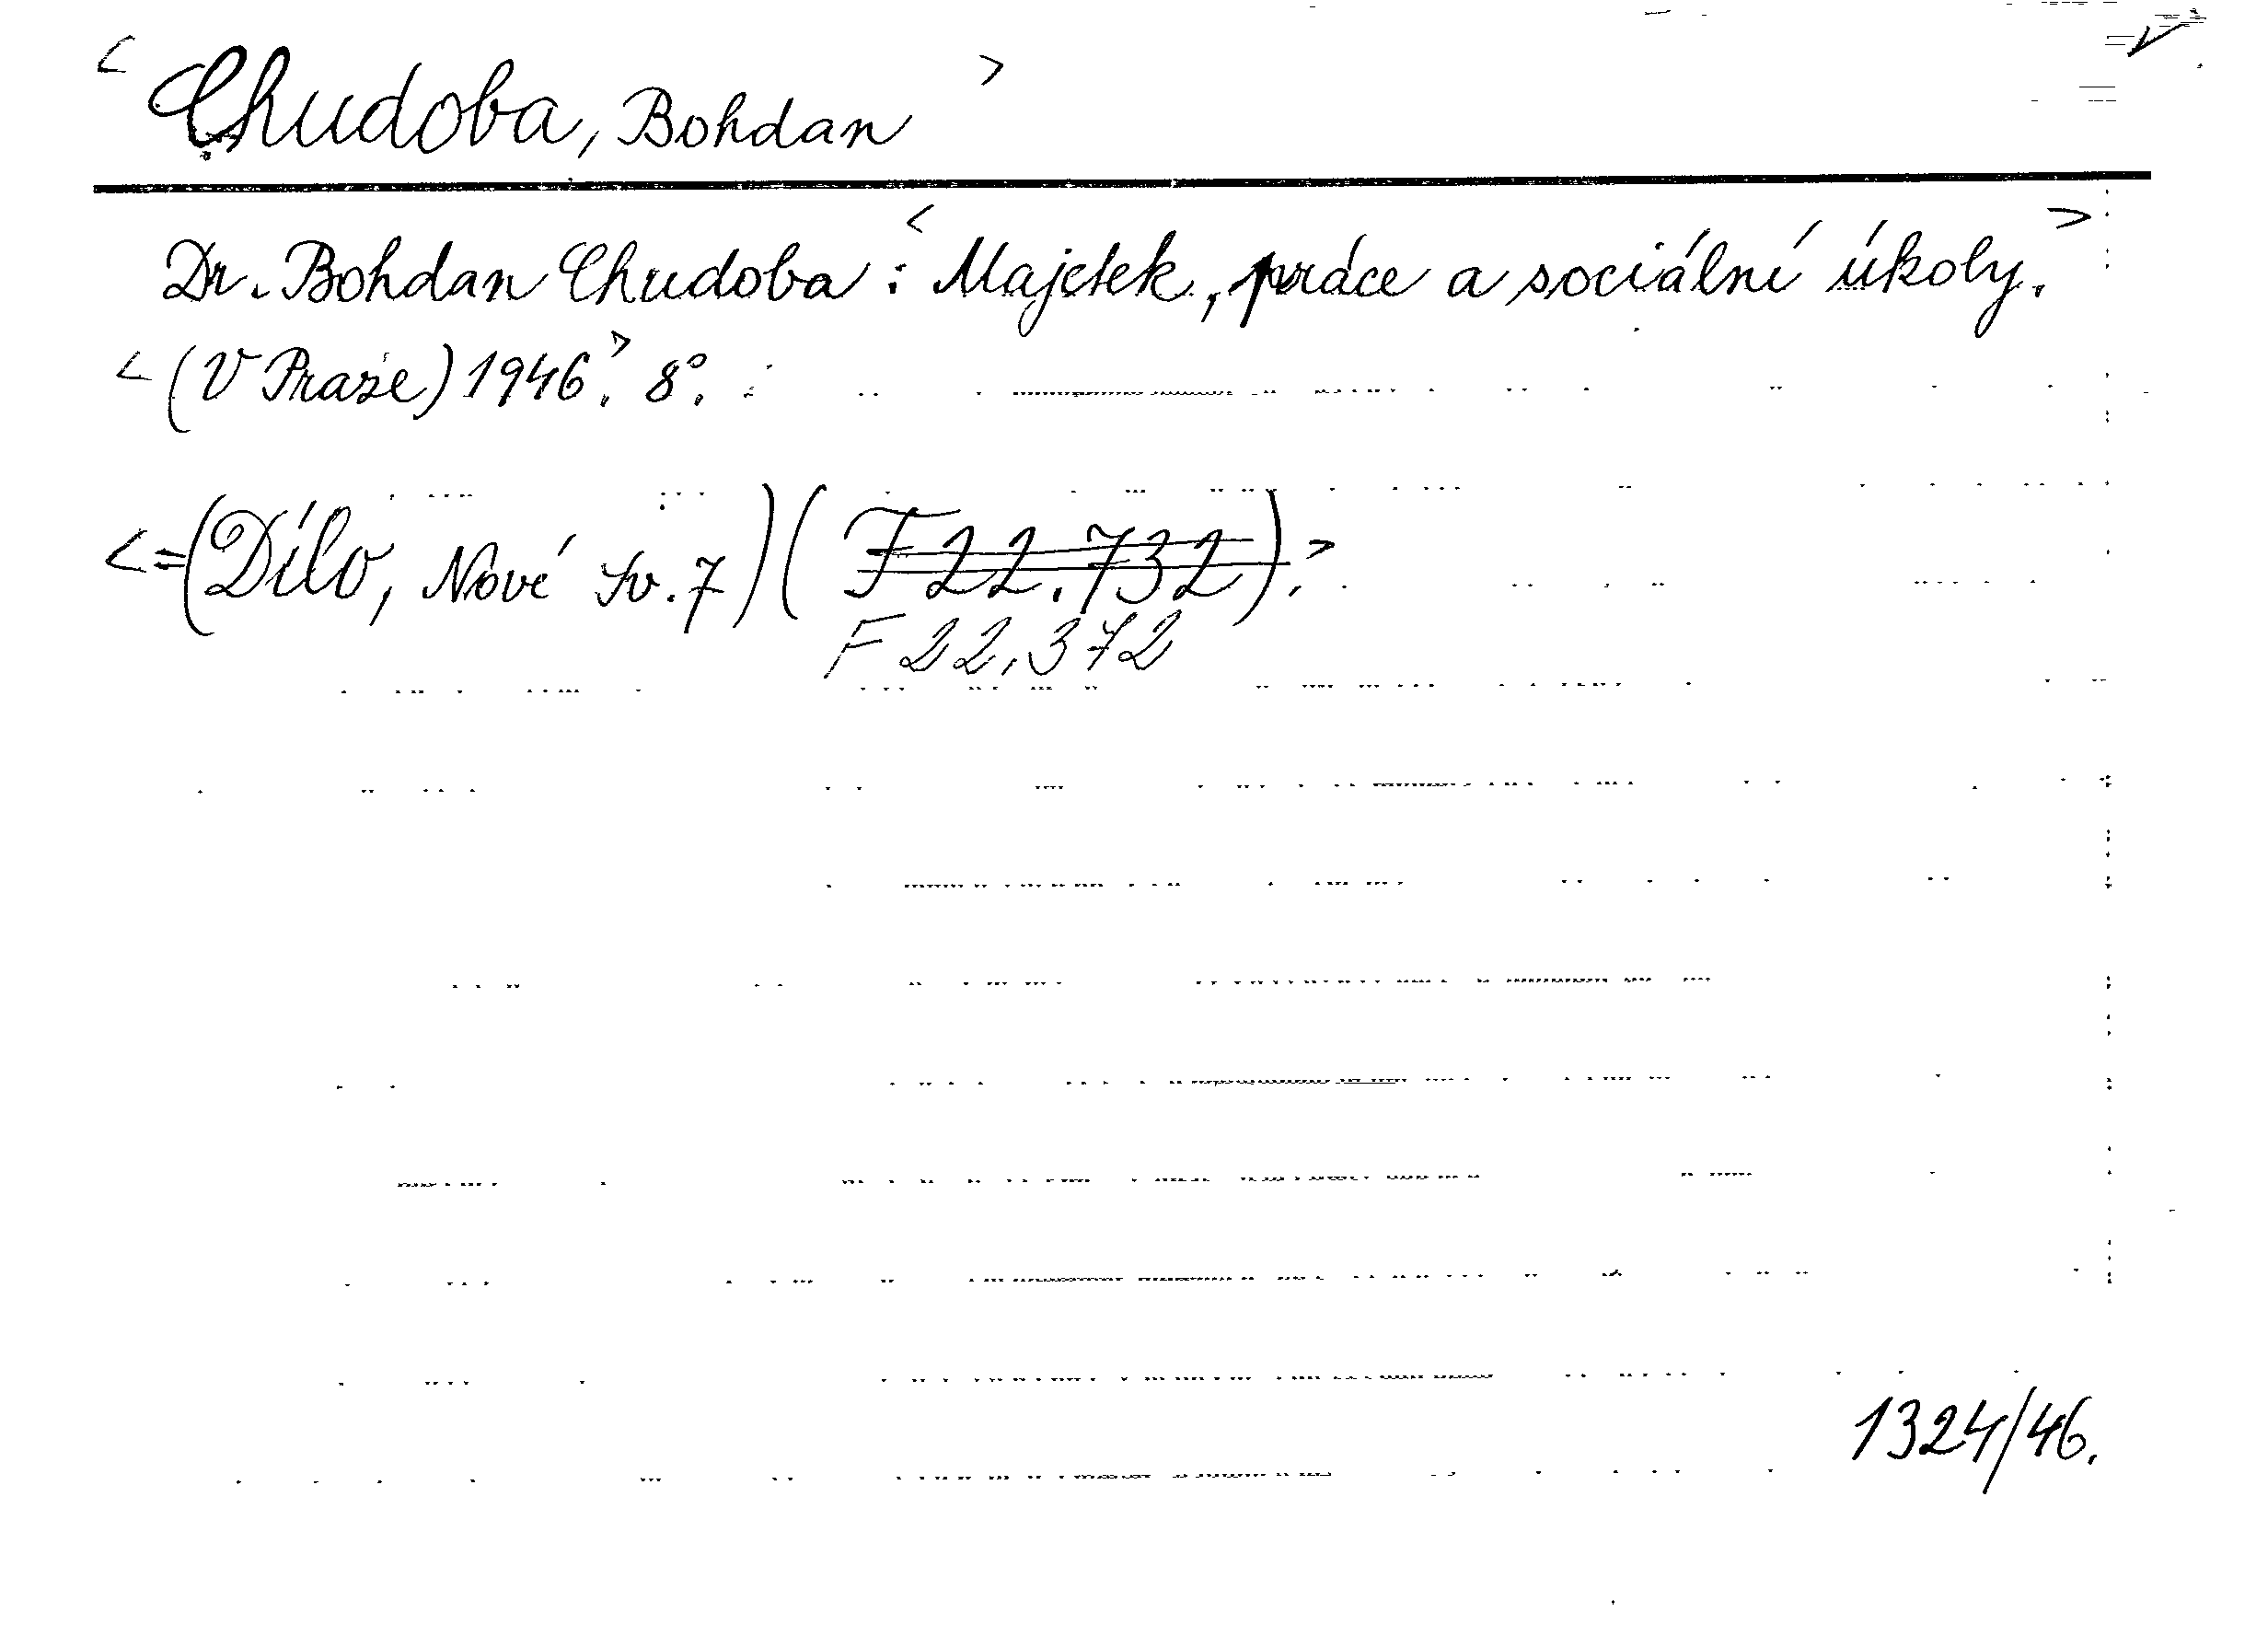 < Chudoba, Bohdan >
Dr. Bohdan Chudoba: < Majetek, práce a sociální úkoly. >
< (V Praze) 1946. > 8°.
< = (Dílo, Nové sv. 7) (F 22.732). >
F 22.372
1324/46.